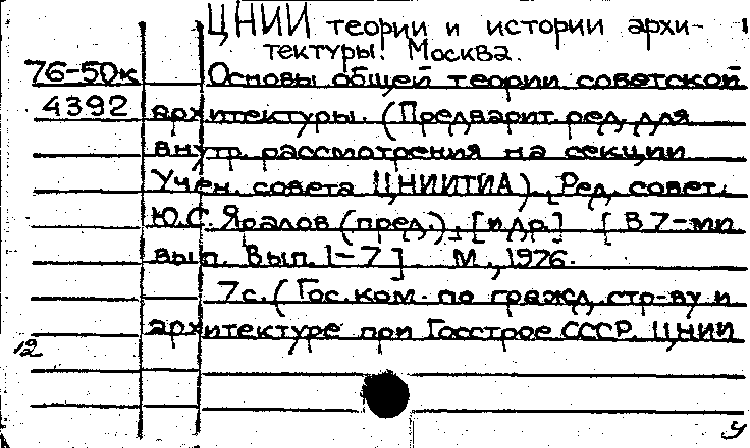 ЦНИИ теории и истории архи-
тектуры. Москва.
76-50к Основы общей теории советской
4392 архитектуры. (Предварит. ред. для
внутр. рассмотрения на секции
Учен. совета ЦНИИТИА). [Ред. совет:
Ю.С. Яралов (пред.), [и др.] [В 7-ми
вып. Вып. 1-7]. М., 1976.
7с. (Гос. ком. по гражд. стр-ву и
архитектуре при Госстрое СССР. ЦНИИ
12